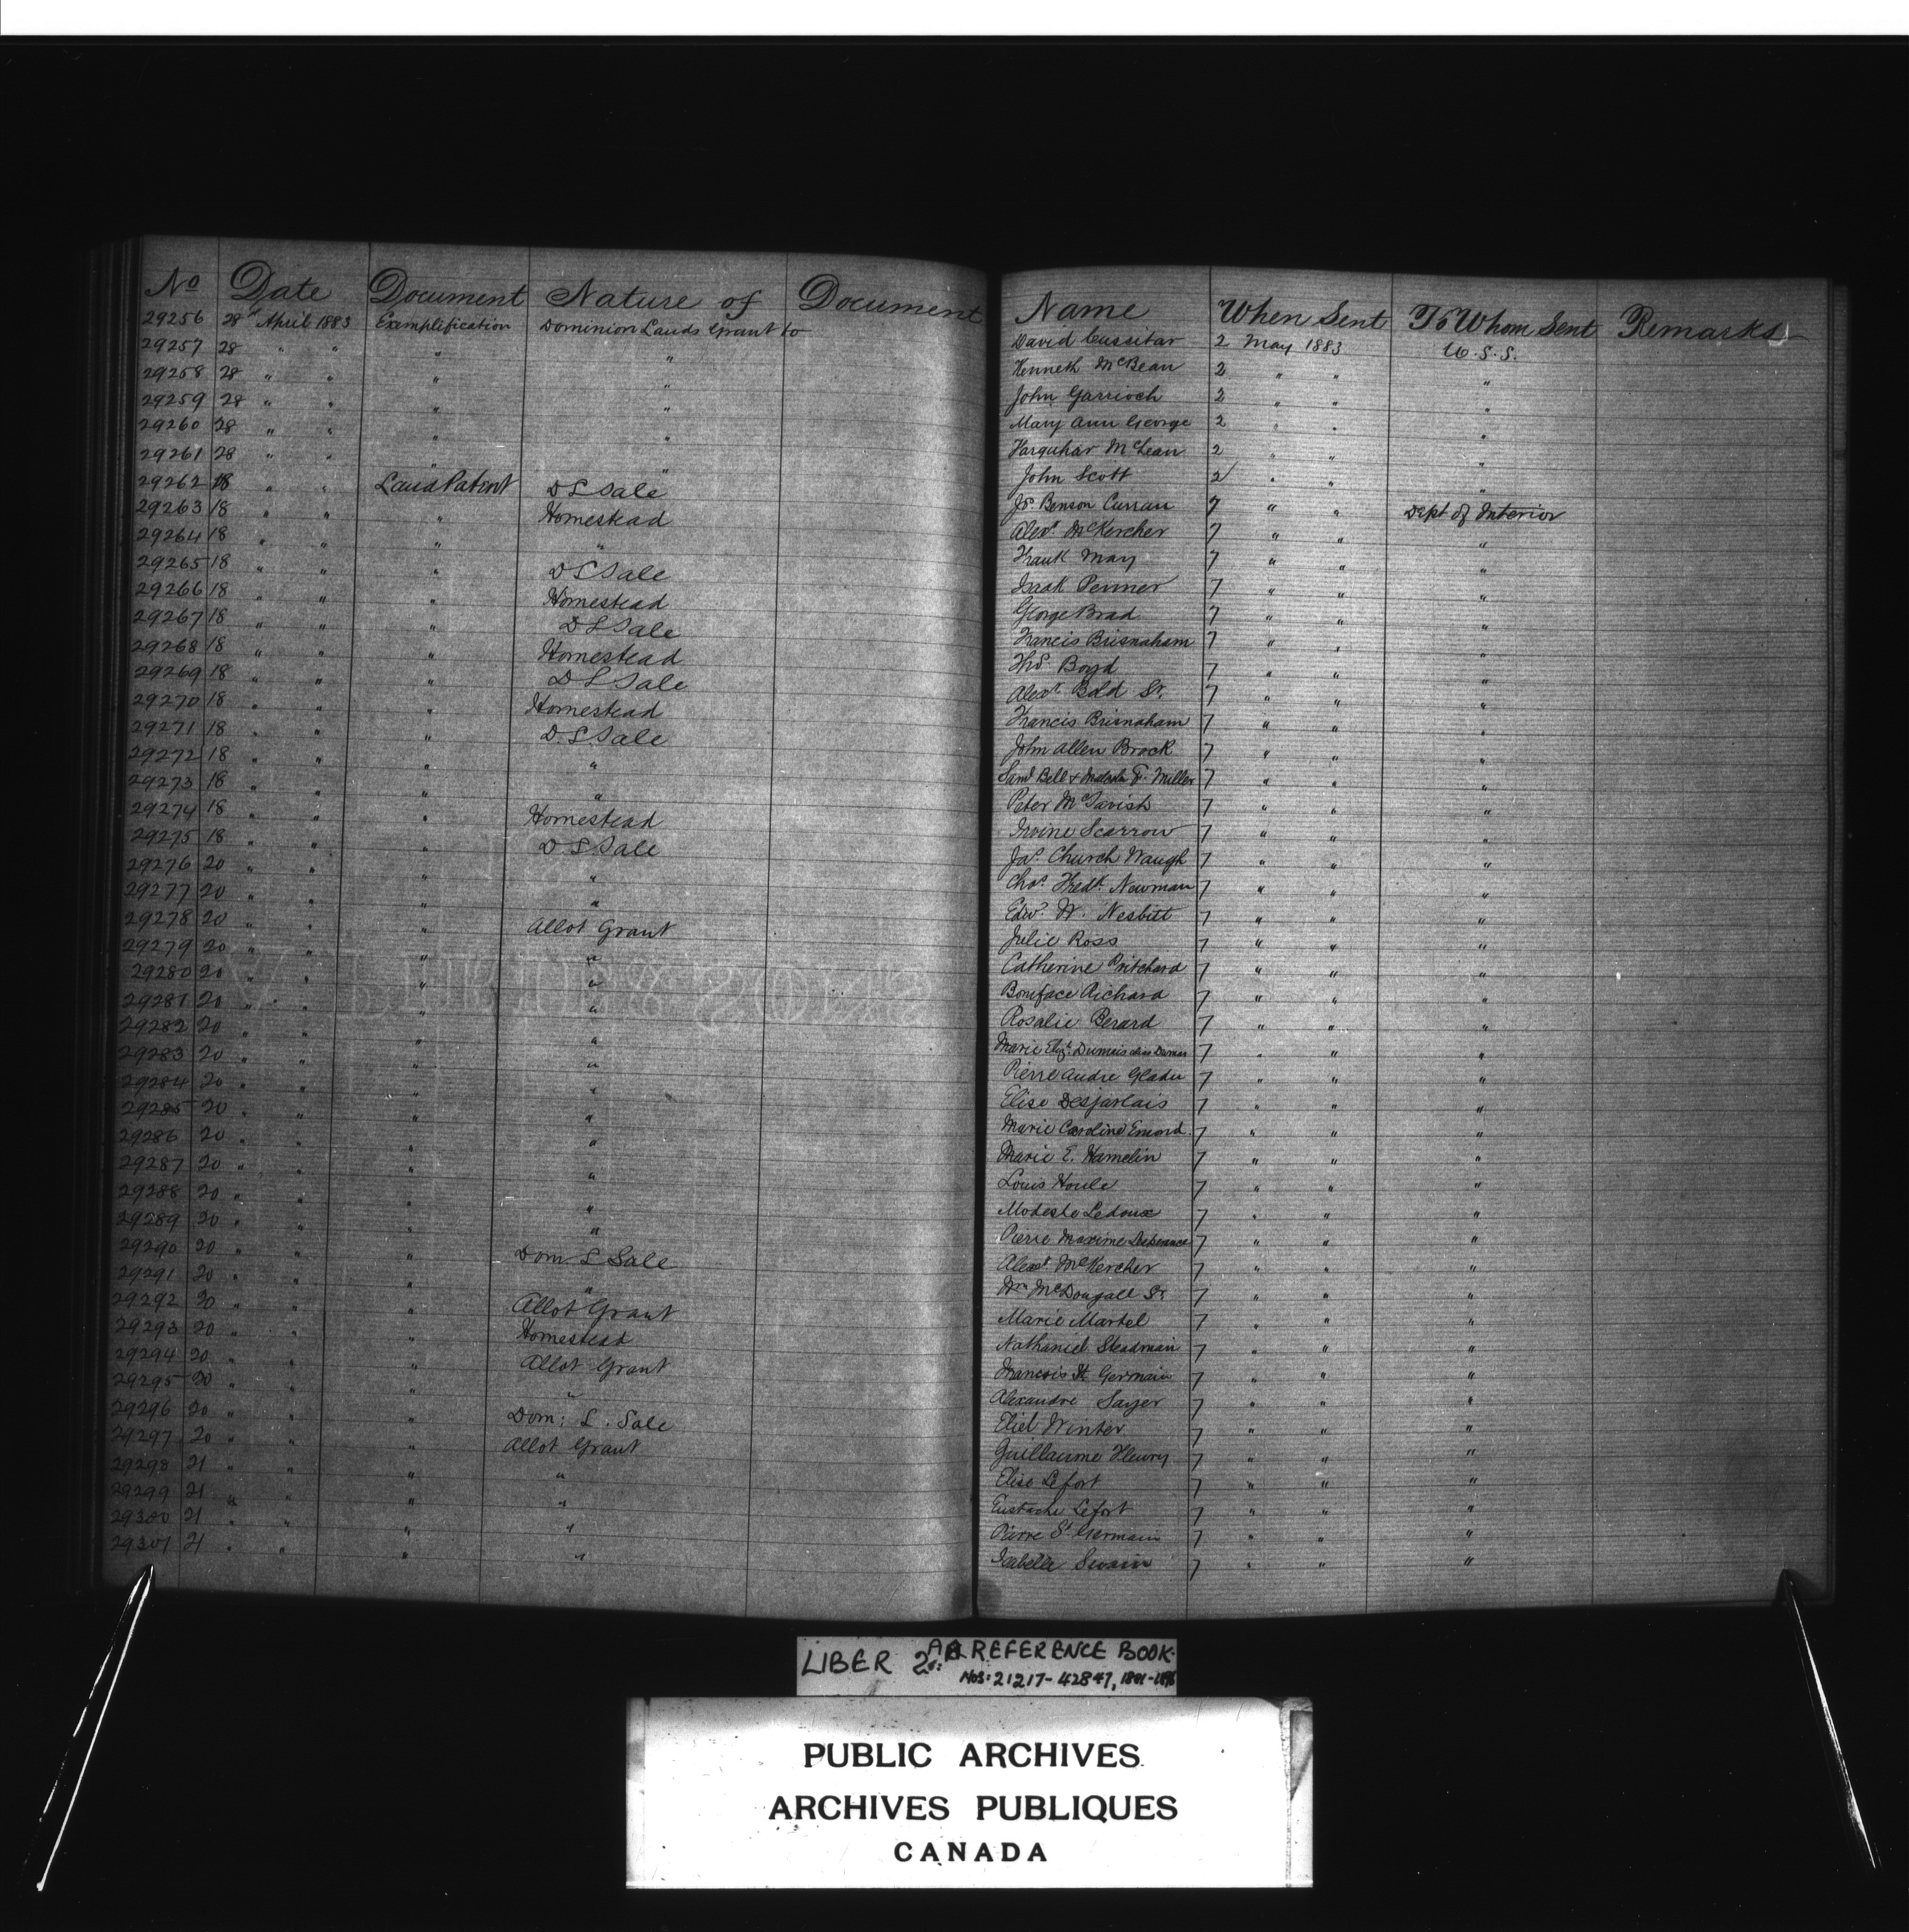 No Date Document Nature of Document Name When Sent To Whom Sent Remarks
29256 28 April 1883 Exemplification Dominion Lands Grant to David Cussitar 2 May 1883 U.S.S.
29257 28 " " " " Kenneth McBean 2 " " "
29258 28 " " " " John Garrioch 2 " " "
29259 28 " " " " Mary Ann George 2 " " "
29260 28 " " " " Farquhar McLean 2 " " "
29261 28 " " " " John Scott 2 " " "
29262 18 " " Land Patent D L Sale Js Benson Curran 7 " " Dept of Interior
29263 18 " " " Homestead Alexr McKercher 7 " " "
29264 18 " " " " Frank May 7 " " "
29265 18 " " " D L Sale Isaak Penner 7 " " "
29266 18 " " " Homestead George Brad 7 " " "
29267 18 " " " D L Sale Francis Brisnaham 7 " " "
29268 18 " " " Homestead Ths Boyd 7 " " "
29269 18 " " " D L Sale Alexr Bold Sr. 7 " " "
29270 18 " " " Homestead Francis Brisnaham 7 " " "
29271 18 " " " D. L. Sale John Allen Brock 7 " " "
29272 18 " " " " Saml Bell & F. Miller 7 " " "
29273 18 " " " " Peter McTavish 7 " " "
29274 18 " " " Homestead Irvine Scarrow 7 " " "
29275 18 " " " D. L. Sale Jas Church Waugh 7 " " "
29276 20 " " " " Chas Fredk Newman 7 " " "
29277 20 " " " " Edwd W. Nesbitt 7 " " "
29278 20 " " " Allot Grant Julie Ross 7 " " "
29279 20 " " " " Catherine Pritchard 7 " " "
29280 20 " " " " Boniface Richard 7 " " "
29281 20 " " " " Rosalie Berard 7 " " "
29282 20 " " " " Marie Elizth Dumais alias Dumas 7 " " "
29283 20 " " " " Pierre Andre Gladu 7 " " "
29284 20 " " " " Elise Desjarlais 7 " " "
29285 20 " " " " Marie Caroline Emond 7 " " "
29286 20 " " " " Marie E. Hamelin 7 " " "
29287 20 " " " " Louis Houle 7 " " "
29288 20 " " " " Modeste Ledoux 7 " " "
29289 20 " " " " Pierre Maxime Lesperance 7 " " "
29290 20 " " " Dom. L Sale Alexr McKercher 7 " " "
29291 20 " " " " Wm McDougall Sr. 7 " " "
29292 20 " " " Allot Grant Marie Martel 7 " " "
29293 20 " " " Homestead Nathaniel Steadman 7 " " "
29294 20 " " " Allot Grant Francois St Germain 7 " " "
29295 20 " " " " Alexandre Sayer 7 " " "
29296 20 " " " Dom: L. Sale Eliel Winter 7 " " "
29297 20 " " " Allot Grant Guillaume Fleury 7 " " "
29298 21 " " " " Elise Lefort 7 " " "
29299 21 " " " " Eustache Lefort 7 " " "
29300 21 " " " " Pierre St Germain 7 " " "
29301 21 " " " " Isabelle Swain 7 " " "
LIBER 2 REFERENCE BOOK.
NOS: 21217-42847,
PUBLIC ARCHIVES
ARCHIVES PUBLIQUES
CANADA